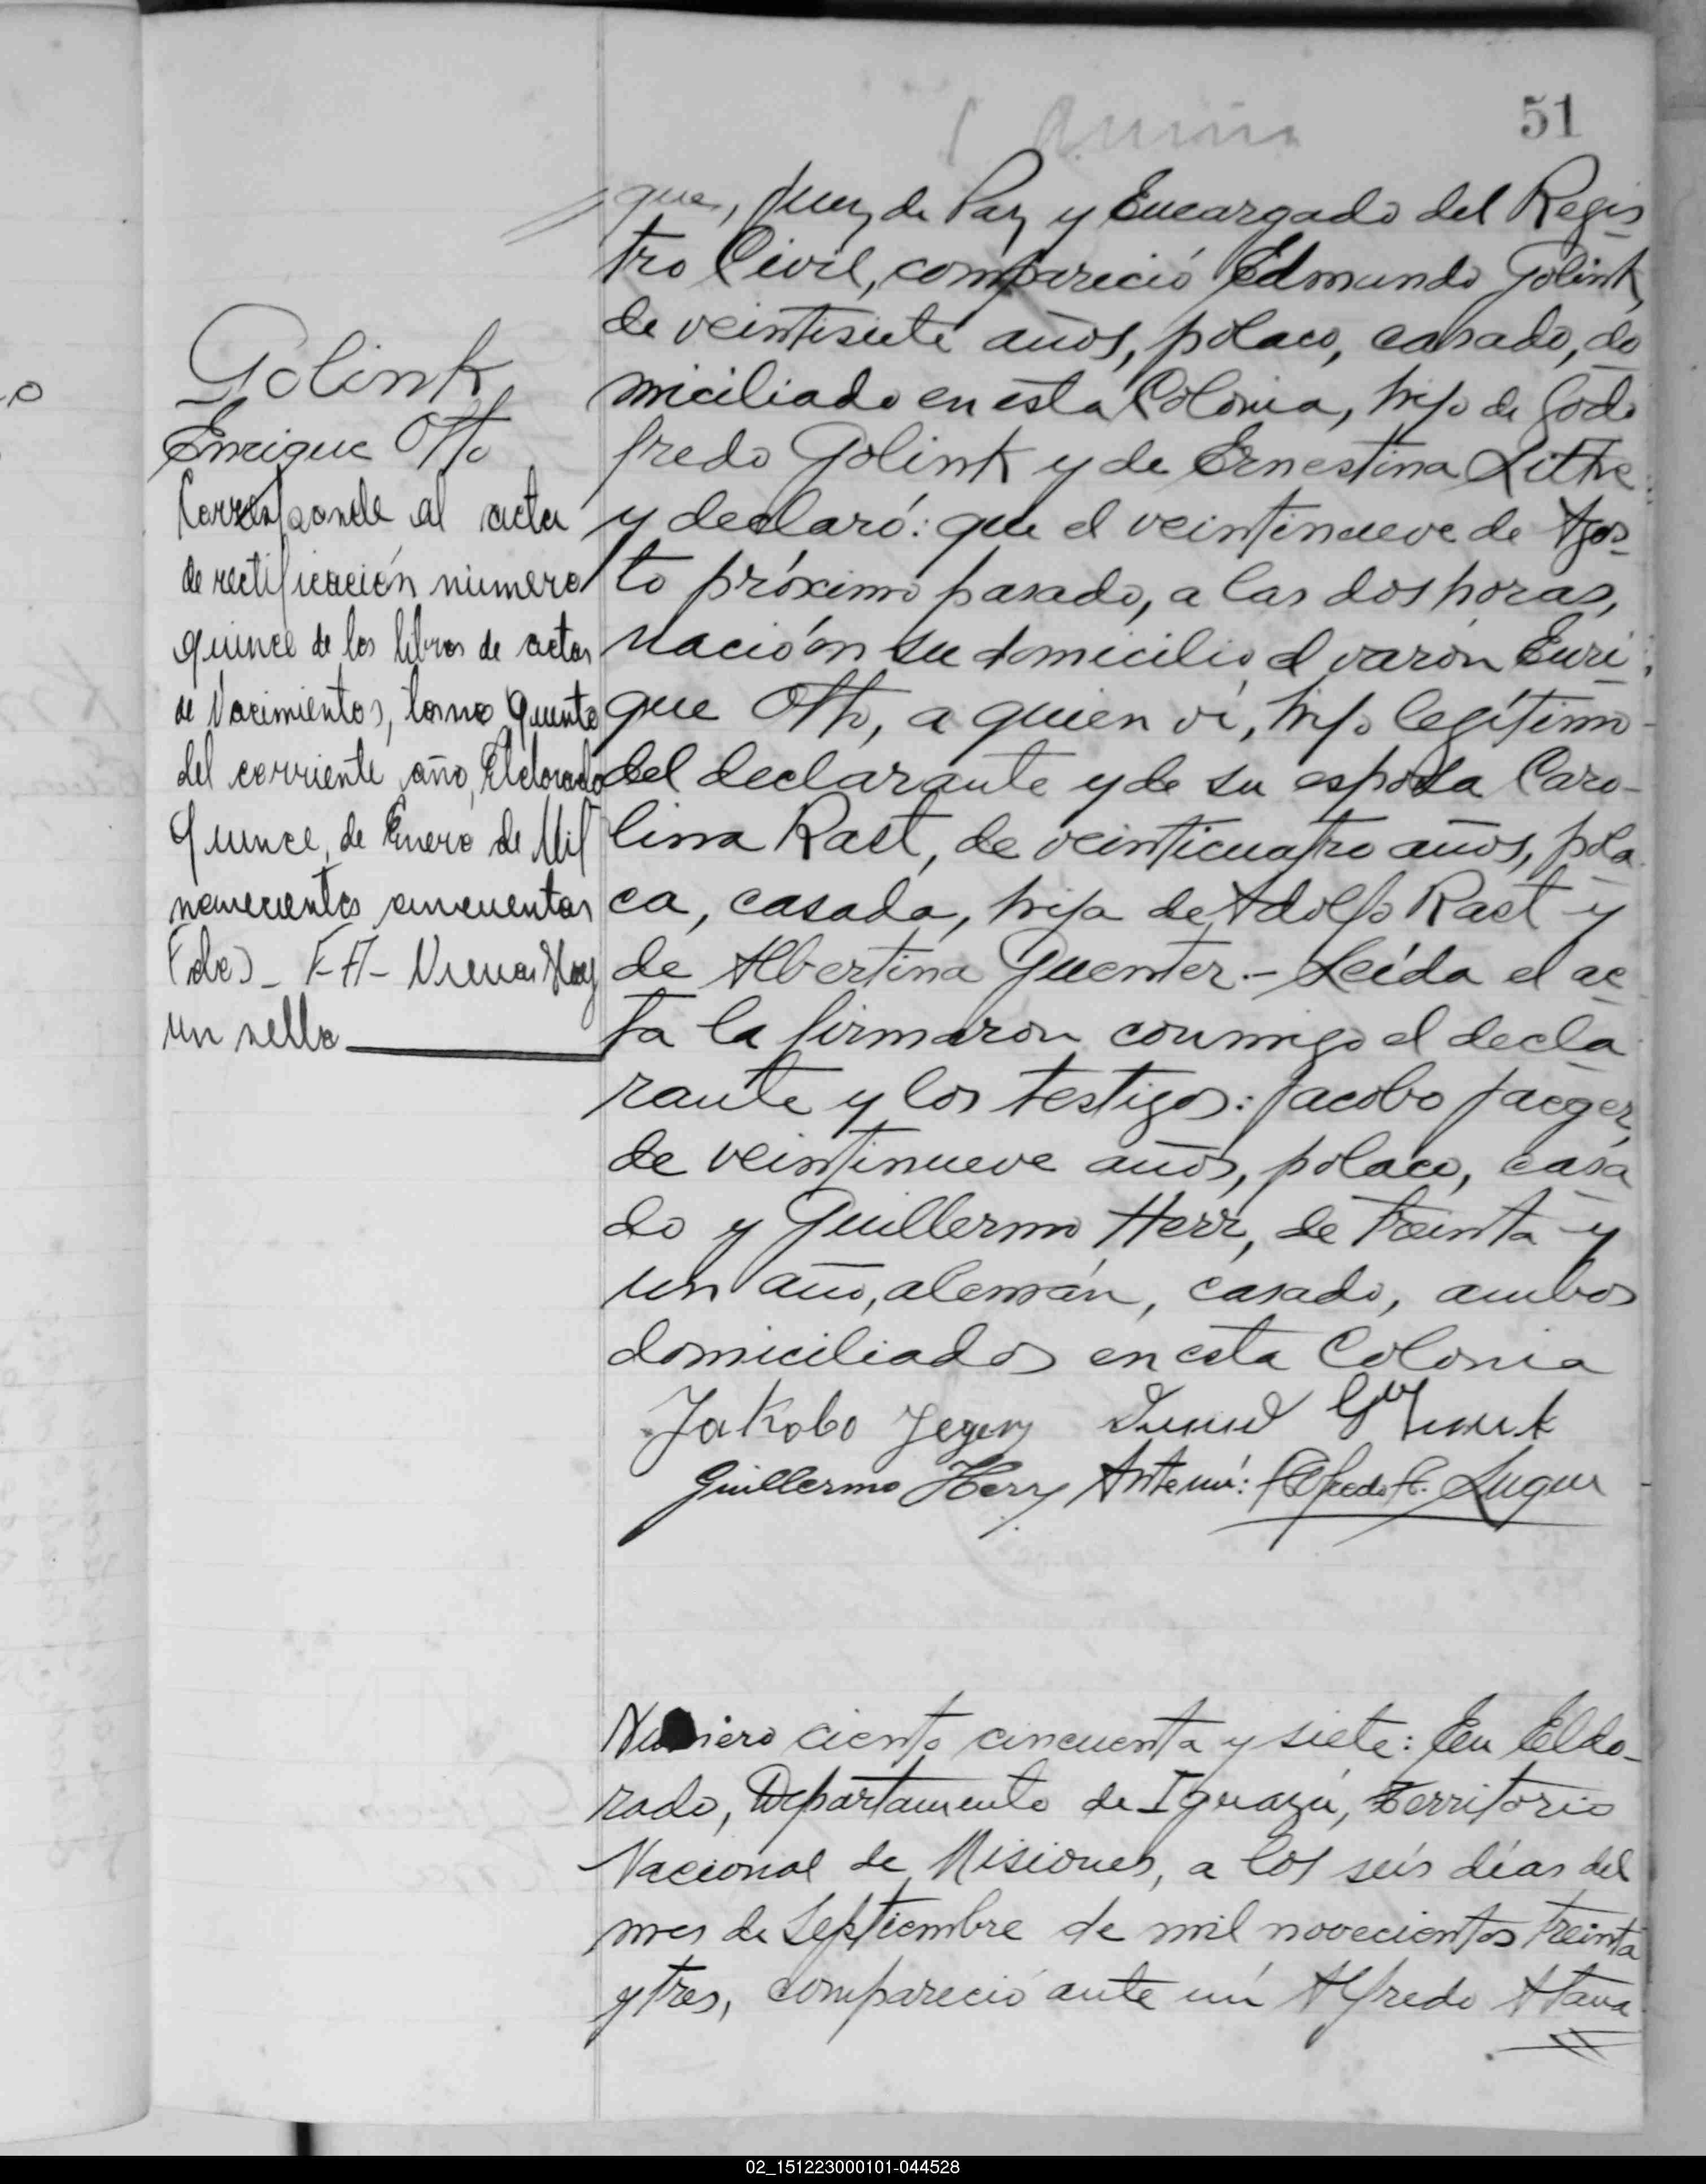 51
que, Juez de Paz y Encargado del Regis
tro Civil, compareció Edmundo Golink,
de veintisiete años, polaco, casado, do
miciliado en esta Colonia, hijo de Godo
fredo Golink y de Ernestina Litke
y declaró: que el veintinueve de Agos
to próximo pasado, a las dos horas,
nació en su domicilio, el varón Enri
que Otto, a quien ví, hijo legítimo
del declarante y de su esposa Caro-
lina Rast, de veinticuatro años, pola
ca, casada, hija de Adolfo Rast y
de Albertina Guenter.- Leída el ac
ta la firmaron conmigo el decla
rante y los testigos: Jacobo Jaeger,
de veintinueve años, polaco, casa
do y Guillermo Herr, de treinta y
un año, alemán, casado, ambos
domiciliados en esta Colonia
Jakobo Jeger
Guillermo Herr Ante mí: Alfredo A. Luque
Golink,
Enrique Otto
Corresponde al acta
de rectificación número
quince de los libros de actas
de Nacimientos, tomo quinto
del corriente año, Eldorado
Quince, de Enero de Mil
novecientos cincuenta
un sello
Número ciento cincuenta y siete: En Eldo-
rado, Departamento de Iguazú, Territorio
Nacional de Misiones, a los seis días del
mes de Septiembre de mil novecientos treinta
y tres, compareció ante mí Alfredo Atana
02_151223000101-044528